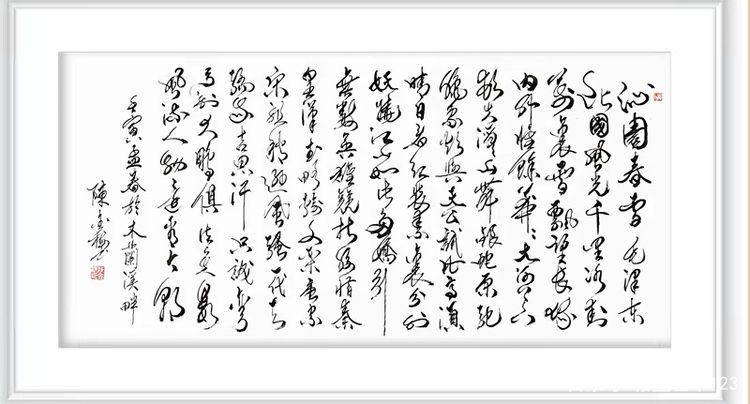 沁園春雪 毛澤東
北國風光千里冰封
萬里雪飄望長城
内外惟餘莽莽大河上下
頓失滔滔山舞銀蛇原馳
蠟象欲與天公試比高須
晴日看紅裝素裹分外
妖嬈江山如此多嬌引
無數英雄競折腰惜秦
皇漢武略輸文采唐宗
宋祖稍遜風騷一代天
驕成吉思汗只識彎
弓射大鵰俱往矣數
風流人物還看今朝
壬寅孟春於木蘭溪畔
陳金
23